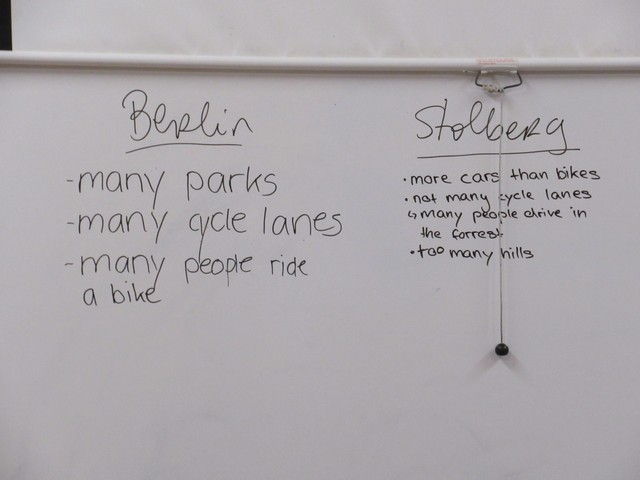 Berlin
-many parks
-many cycle lanes
-many people ride
a bike
Stolberg
•more cars than bikes
•not many cycle lanes
↳many people drive in
the forrest
•too many hills